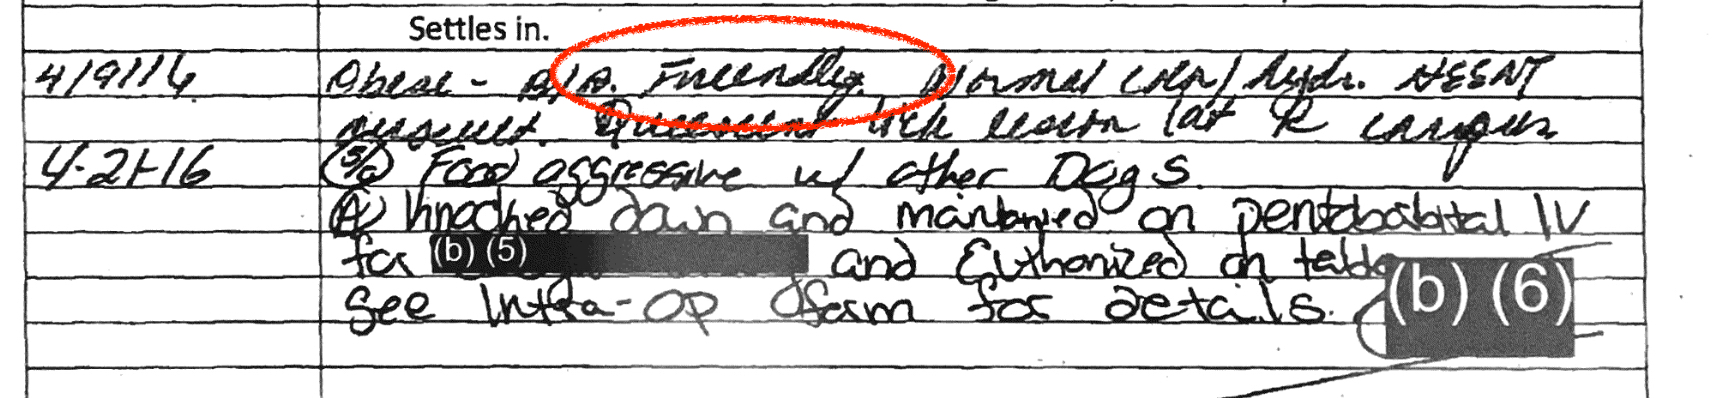 Settles in.
4/9/16 Obese - B/A. Friendly. Normal CRR/hydr. HEENT
Quiescent lick lesion lat R carpus
4-21-16 S/O Food aggressive w/ other Dogs.
A) Knocked down and maintained on pentobarbital IV
for (b) (5) and Euthanized on table
See Intra-Op form for details. (b) (6)